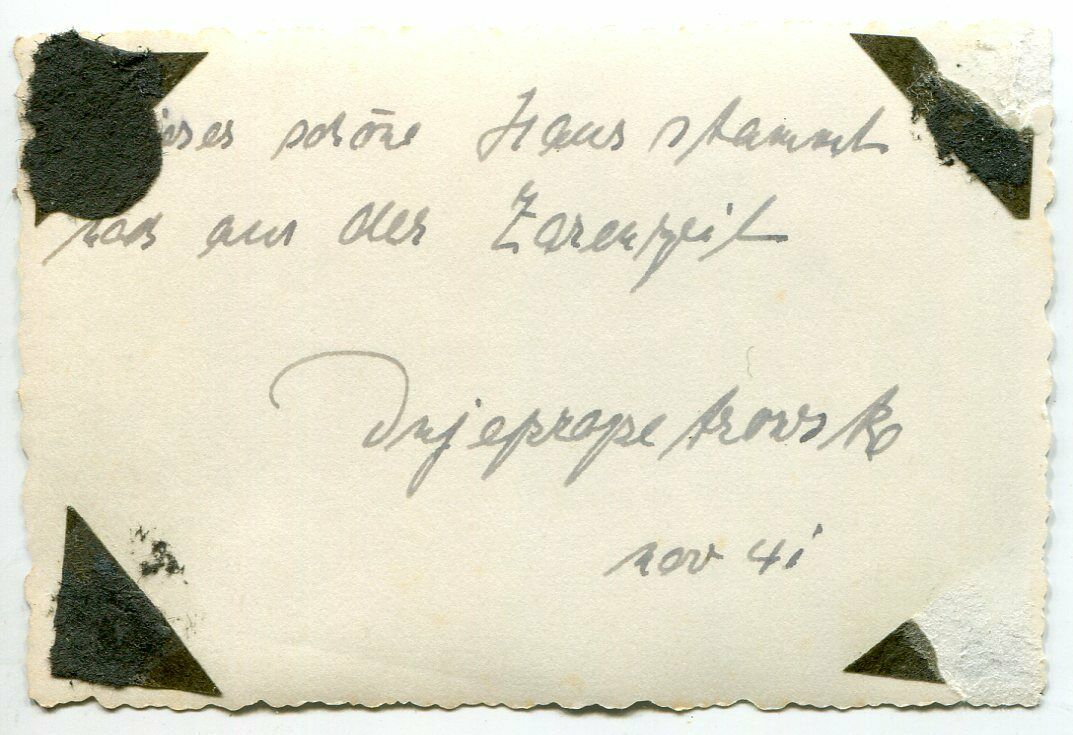 ieses schöne Haus stammt
noch aus der Zarenzeit
Dnjepropetrowsk
nov 41